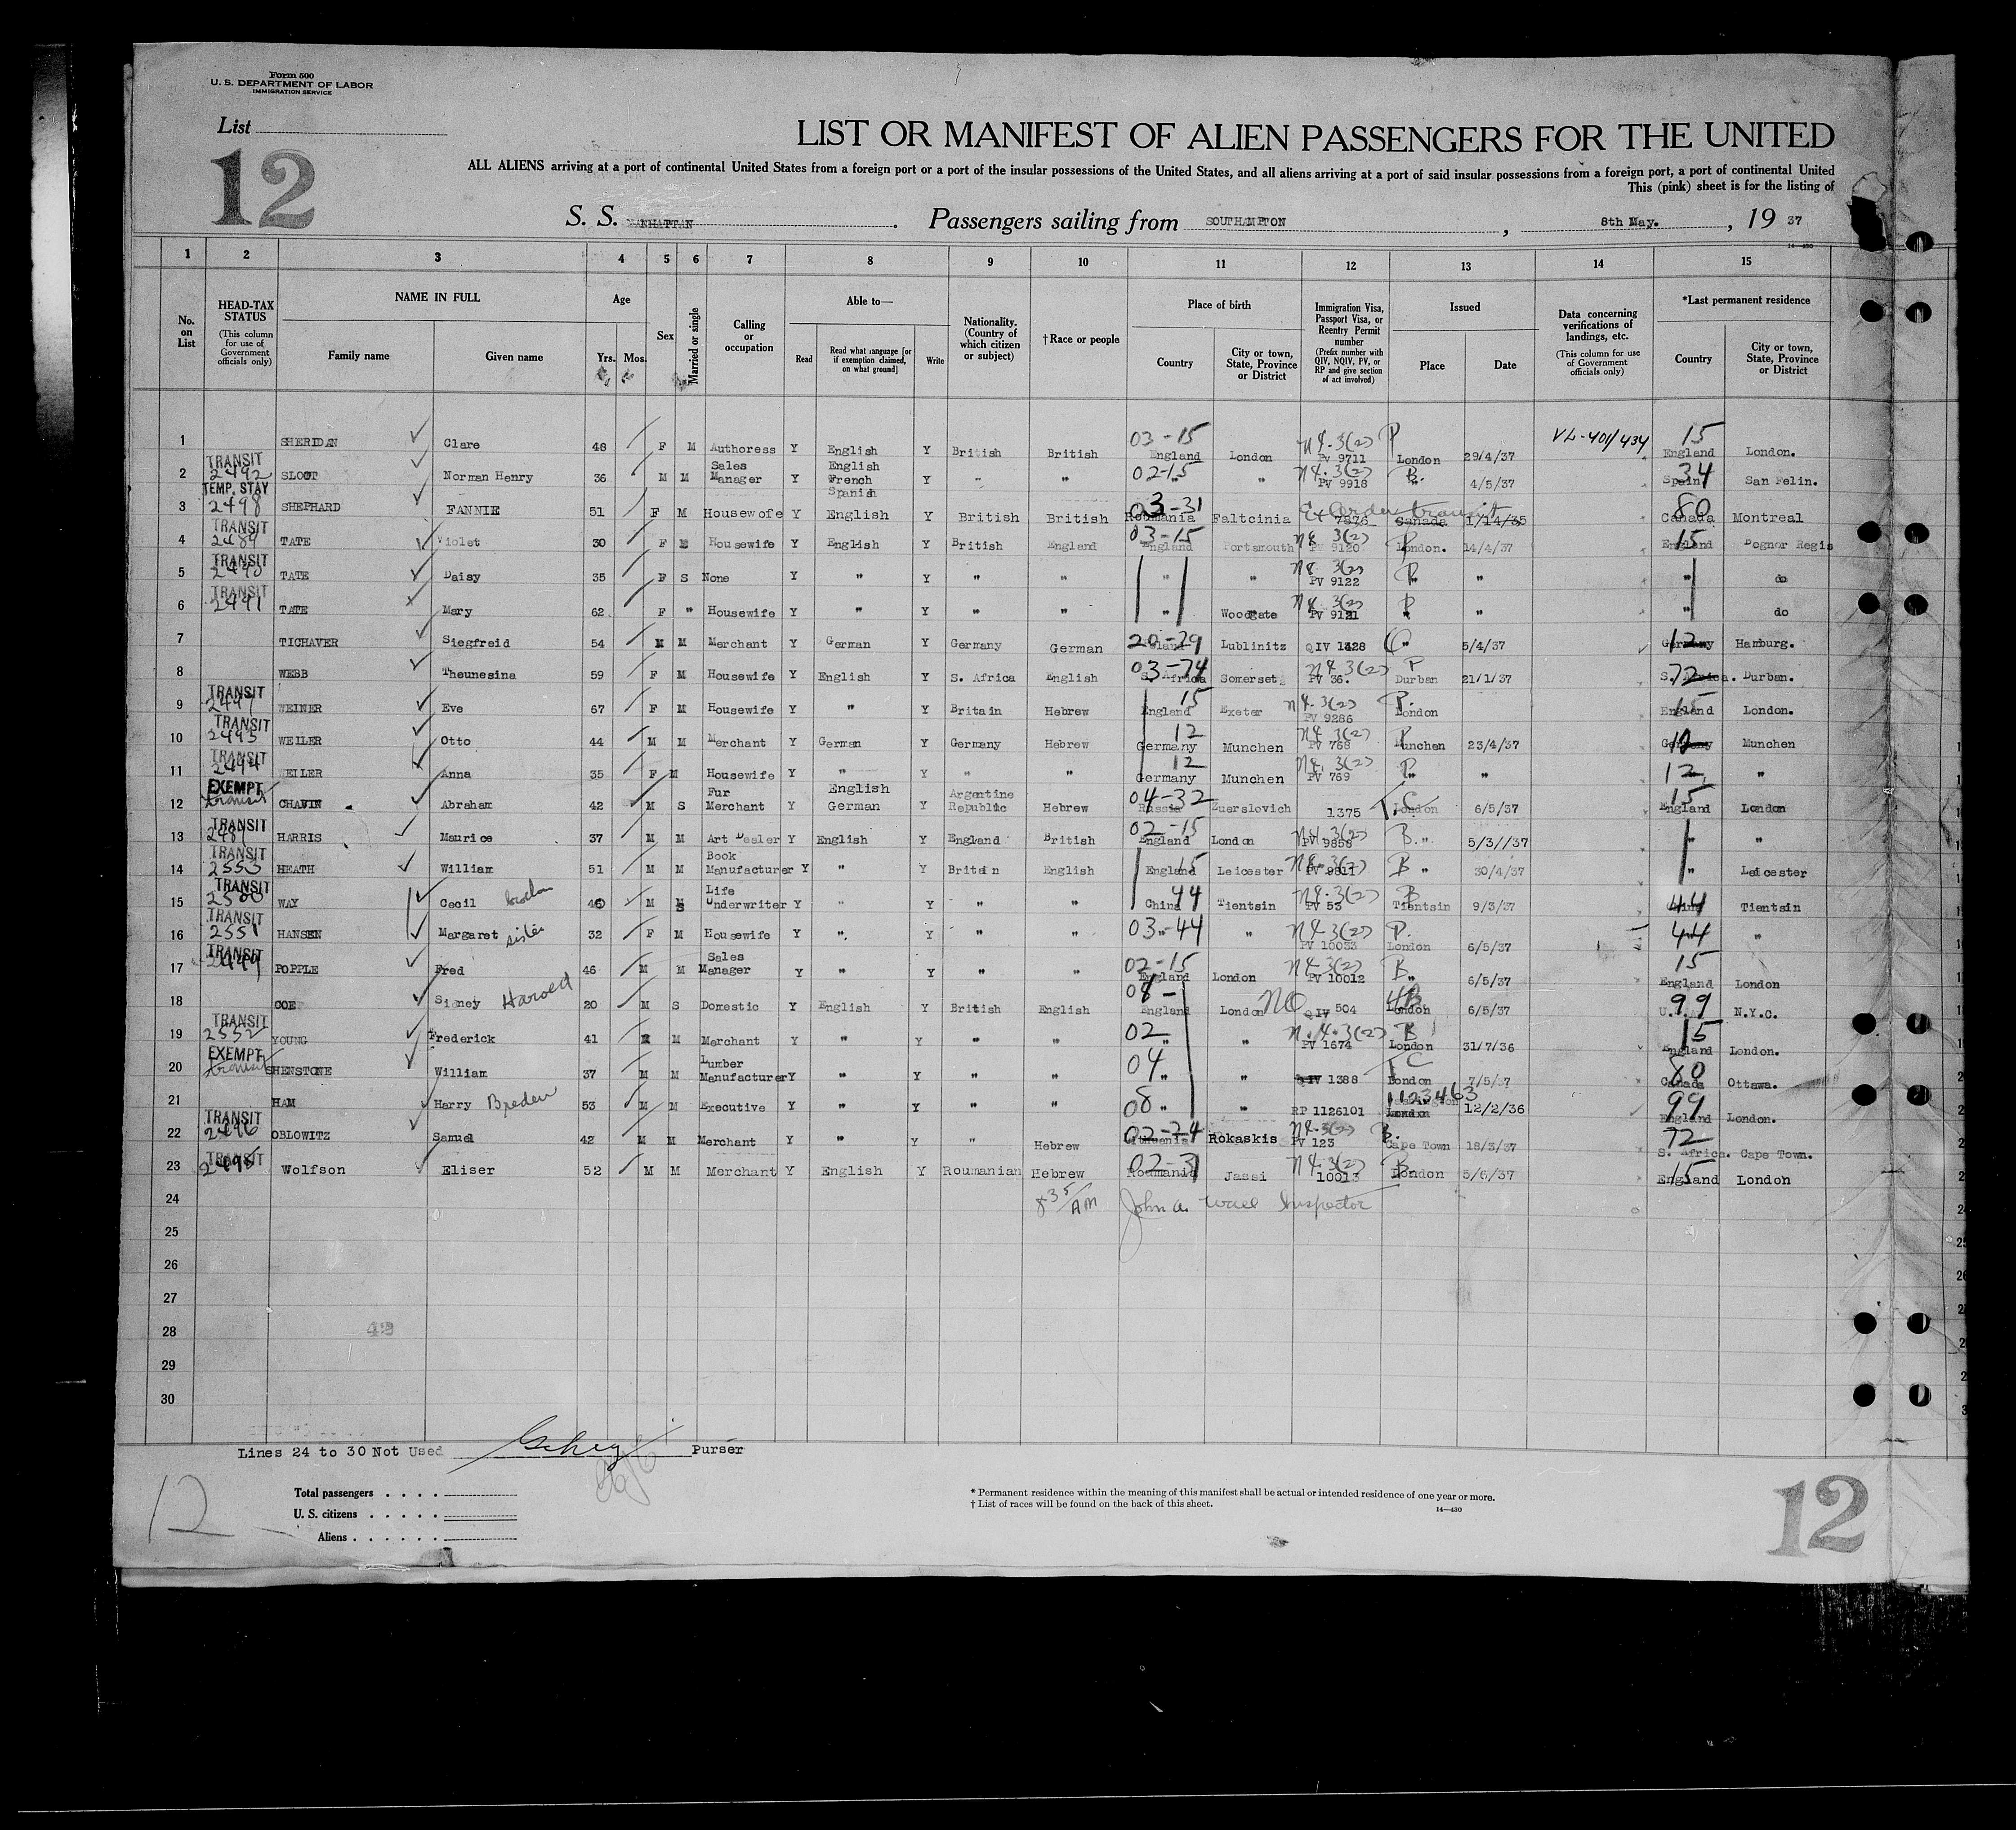 Form 500
U. S. DEPARTMENT OF LABOR
IMMIGRATION SERVICE
List
12
LIST OR MANIFEST OF ALIEN PASSENGERS FOR THE UNITED
ALL ALIENS arriving at a port of continental United States from a foreign port or a port of the insular possessions of the United States, and all aliens arriving at a port of said insular possessions from a foreign port, a port of continental United
This (pink) sheet is for the listing of
S. S. MANHATTAN. Passengers sailing from SOUTHAMPTON, 8th May., 19 37
14—430
1 2 3 4 5 6 7 8 9 10 11 12 13 14 15
No. on List
HEAD-TAX STATUS (This column for use of Government officials only)
NAME IN FULL
Family name Given name
Age Yrs. Mos.
Sex
Married or single
Calling or occupation
Able to—
Read Read what language [or if exemption claimed, on what ground] Write
Nationality. (Country of which citizen or subject)
†Race or people
Place of birth
Country City or town, State, Province or District
Immigration Visa, Passport Visa, or Reentry Permit number (Prefix number with QIV, NQIV, PV, or RP and give section of act involved)
Issued
Place Date
Data concerning verifications of landings, etc. (This column for use of Government officials only)
*Last permanent residence
Country City or town, State, Province or District
1 SHERIDAN Clare 48 F M Authoress Y English Y British British 03-15 England London N4.3(2) PV 9711 P London 29/4/37 VL-401/434 15 England London.
2 TRANSIT 2492 SLOOT Norman Henry 36 M M Sales Manager Y English French Spanish Y " " 02-15 " " N4.3(2) PV 9918 B. " 4/5/37 34 Spain San Felin.
3 TEMP. STAY 2498 SHEPHARD FANNIE 51 F M Housewofe Y English Y British British 03-31 Roumania Faltcinia 7876 Ex Order transit Canada 1/14/35 80 Canada Montreal
4 TRANSIT 2489 TATE Violet 30 F M Housewife Y English Y British England 03-15 England Portsmouth N4 3(2) PV 9120 P London. 14/4/37 15 England Bognor Regis
5 TRANSIT 2490 TATE Daisy 35 F S None Y " Y " " " " N4 3(2) PV 9122 P " " " do
6 TRANSIT 2491 TATE Mary 62 F " Housewife Y " Y " " " Woodgate N4 3(2) PV 9121 P " " " do
7 TICHAVER Siegfreid 54 M M Merchant Y German Y Germany German 20-29 Lublinitz QIV 1328 " 5/4/37 12 Germany Hamburg.
8 WEBB Theunesina 59 F M Housewife Y English Y S. Africa English 03-74 S. Africa Somerset N4 3(2) PV 36. P Durban 21/1/37 72 S. Africa. Durban.
9 TRANSIT 2497 WEINER Eve 67 F M Housewife Y " Y Britain Hebrew 15 England Exeter N4.3(2) PV 9286 P. London 15 England London.
10 TRANSIT 2493 WEILER Otto 44 M M Merchant Y German Y Germany Hebrew 12 Germany Munchen N4 3(2) PV 768 P Munchen 23/4/37 12 Germany Munchen
11 TRANSIT 2494 WEILER Anna 35 F M Housewife Y " Y " " 12 Germany Munchen N4. 3(2) PV 769 P " " 12 "
12 EXEMPT transit CHAVIN Abraham 42 M S Fur Merchant Y English German Y Argentine Republic Hebrew 04-32 Russia Zuerslovich 1375 C London 6/5/37 15 England London
13 TRANSIT HARRIS Maurice 37 M M Art Dealer Y English Y England British 02-15 England London N4.3(2) PV 9858 B. " 5/3//37 " "
14 TRANSIT 2553 HEATH William 51 M M Book Manufacturer Y " Y Britain English 15 England Leicester N4.3(2) PV 9811 B " 30/4/37 " Leicester
15 TRANSIT WAY Cecil 40 M S Life Underwriter Y " Y " " 44 China Tientsin N4.3(2) PV 53 B Tientsin 9/3/37 44 China Tientsin
16 TRANSIT 2551 HANSEN Margaret sister 32 F M Housewife Y " Y " " 03-44 " " N4-3(2) PV 10033 P. London 6/5/37 44 "
17 TRANSIT 2499 POPPLE Fred 46 M M Sales Manager Y " Y " " 02-15 England London N4-3(2) PV 10012 B " 6/5/37 15 England London
18 COE Sidney Harold 20 M S Domestic Y English Y British English 08- England London NO QIV 504 4B London 6/5/37 99 N.Y.C.
19 TRANSIT 2552 YOUNG Frederick 41 M M Merchant Y " Y " " 02 " " N.4.3(2) PV 1674 B London 31/7/36 15 England London.
20 EXEMPT transit SHENSTONE William 37 M M Lumber Manufacturer Y " Y " " 04 " " 1388 C London 7/5/37 80 Canada Ottawa.
21 HAM Harry Breden 53 M M Executive Y " Y " " 08 " " RP 1126101 1123463 London 12/2/36 99 England London.
22 TRANSIT 2496 OBLOWITZ Samuel 42 M M Merchant Y " Y " Hebrew 02-24 Lithuania Rokaskis N4.3(2) PV 123 B. Cape Town 18/3/37 72 S. Africa. Cape Town.
23 TRANSIT 2495 Wolfson Eliser 52 M M Merchant Y English Y Roumanian Hebrew 02-31 Roumania Jassi N4 3(2) 10013 B London 5/6/37 15 England London
24 8 35/AM John A. Wall Inspector
25
26
27
28 42
29
30
Lines 24 to 30 Not Used Purser
12
Total passengers . . . .
U. S. citizens . . . . .
Aliens . . . . . .
* Permanent residence within the meaning of this manifest shall be actual or intended residence of one year or more.
† List of races will be found on the back of this sheet.
14—430
12